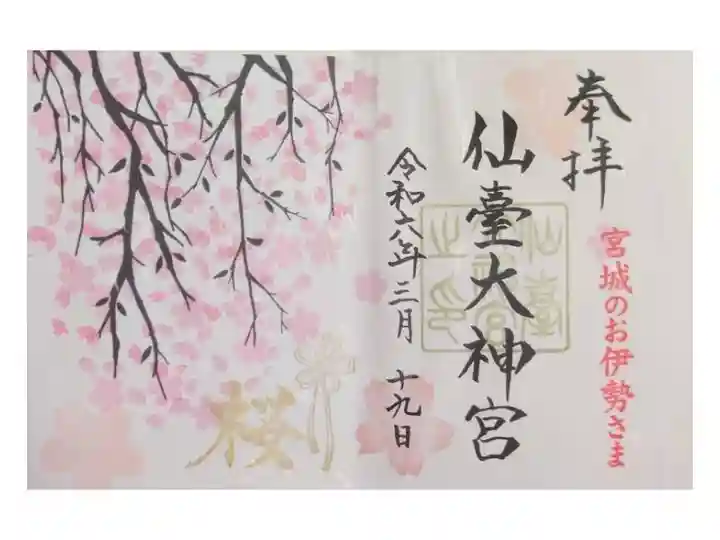 奉拝
宮城のお伊勢さま
仙臺大神宮
仙臺
神宮
之印
令和六年三月十九日
桜